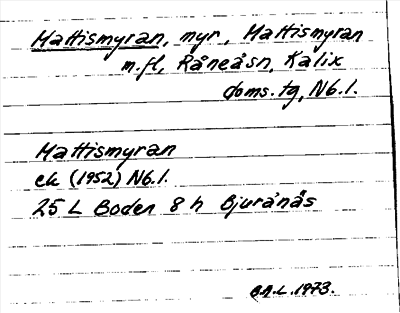 Mattismyran, myr, Mattismyran
m.fl, Råneå sn, Kalix
doms. tg, Nb.l.
Mattismyran
ek (1952) Nb.l.
25 L Boden 8 h Bjurånäs
B.A.L. 1973.